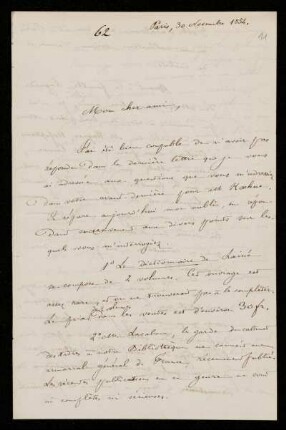 Paris, 30 Novembre 1854.
62
Mon cher ami,
J'ai été bien coupable de n'avoir pas
répondu dans la dernière lettre que je vous
ai adressée aux questions que vous m'adressiez
dans votre avant dernière pour
Je répare aujourd'hui mon oubli en répon-
dant succinctement aux divers points sur les-
quels vous m'interrogiez
1° Le dictionnaire de Lainé
se compose de 2 volumes. Cet ouvrage est
assez rare, et on ne trouverait pas à le compléter.
Le prix dans les ventes est d'environ 30 fr.
2° Mr Lacabane, le garde du cabinet
des titres à notre Bibliothèque ne connait un
armorial général de France, récemment publié.
Les récentes publications en ce genre ne sont
ni complètes ni sérieuses.